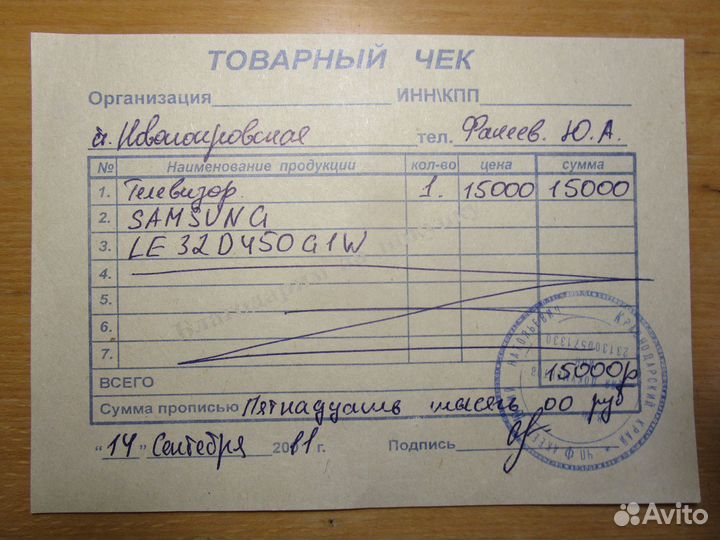 ТОВАРНЫЙ ЧЕК
Организация ИНН\КПП
ст. Новопокровская тел. Факеев. Ю.А.
№ Наименование продукции кол-во цена сумма
1. Телевизор. 1. 15000 15000
2. SAMSUNG
3. LE 32D450G1W
4.
5.
6.
7.
ВСЕГО 15000р
Сумма прописью Пятнадцать тысяч 00 руб
"14" Сентября 2011г. Подпись
КРАСНОДАРСКИЙ КРАЙ
231300571330
Avito